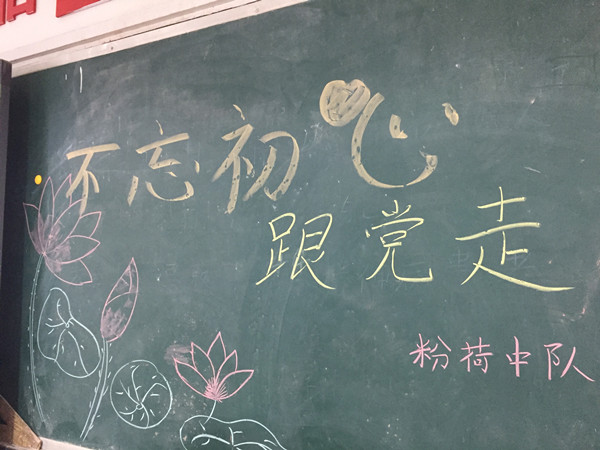 不忘初心
跟党走
粉荷中队